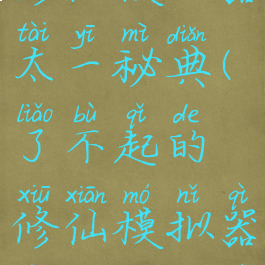 tài yī mì diǎn
太一秘典(
liǎo bù qǐ de
了不起的
xiū xiān mó nǐ qì
修仙模拟器